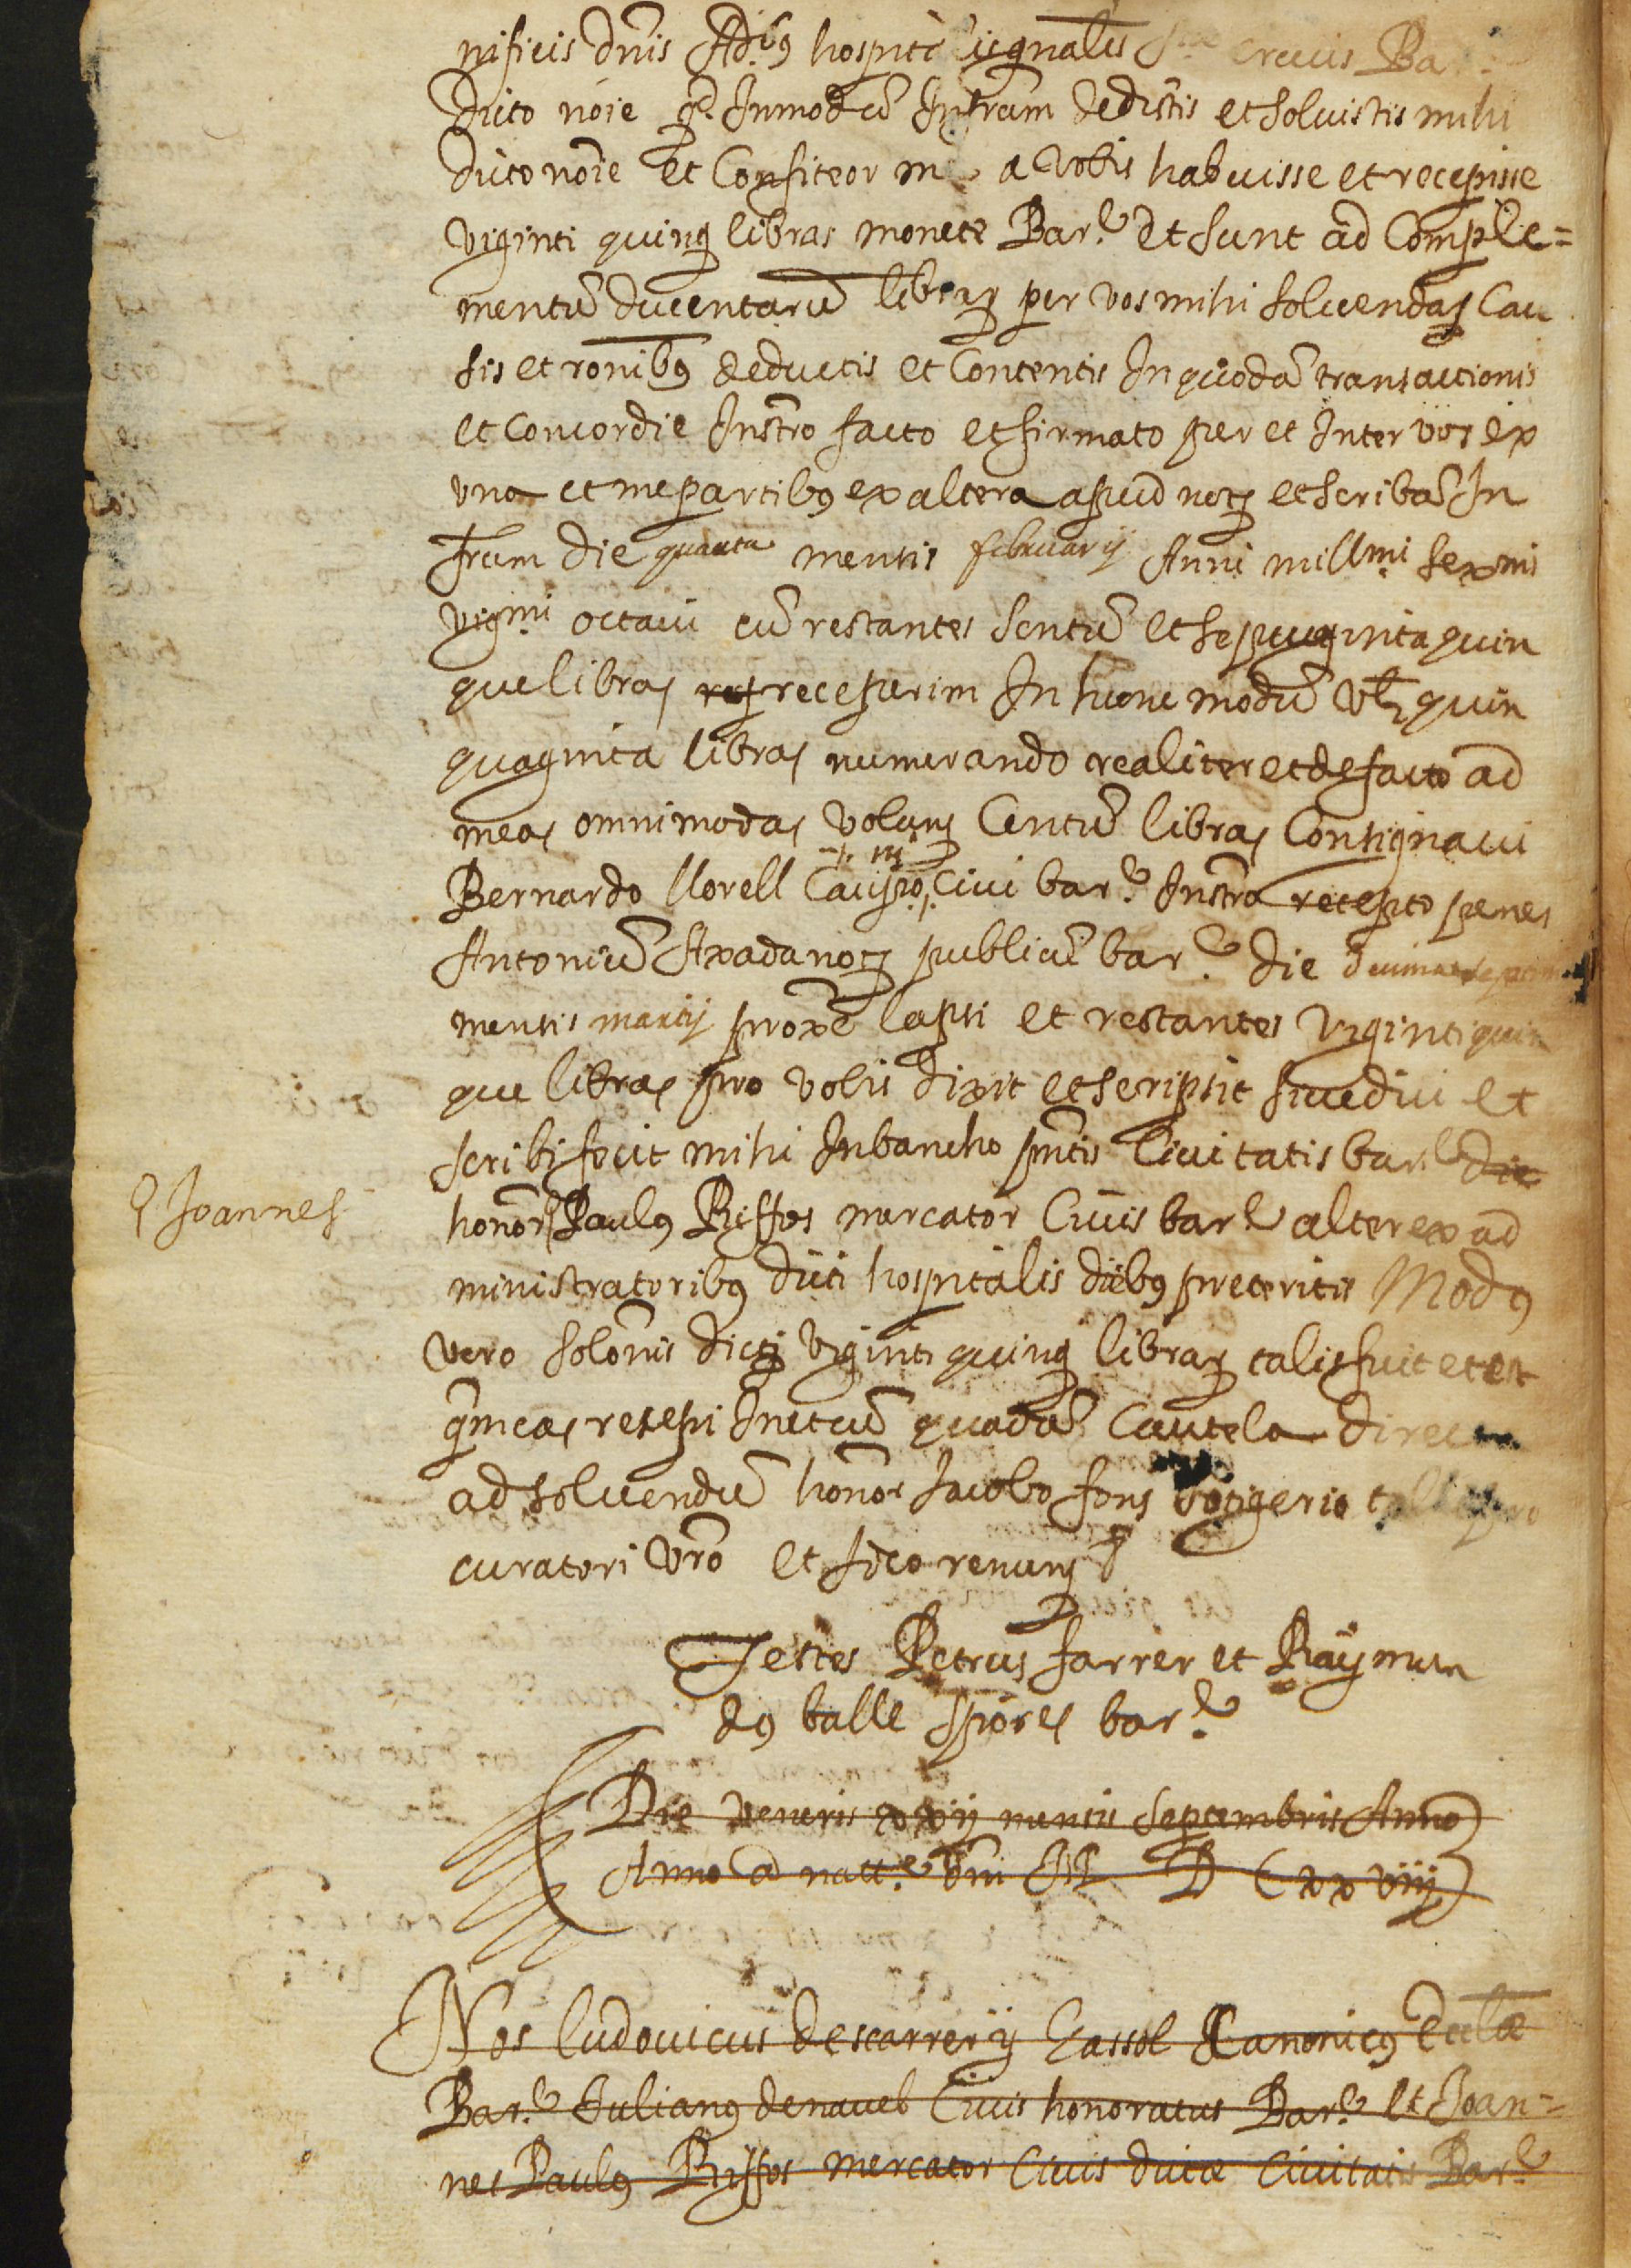 nificis dnis Adibus hospitalis gnalis Stae Crucis Bar
dicto noie q. Inmodu Infram dedistis et soluistis mihi
dicto noie et Confiteor me a vobis habuisse et recepisse
viginti quinq libras monete Bar.e et sunt ad Comple=
mentu ducentaru librar per vos mihi soluendas Cau
sis et ronibus deductis et Contentis In quoda transactionis
et Concordie Instro facto et firmato per et Inter vos ex
una et me partibus ex altera apud not et scriba In
frum die quarta mensis februarij Anni millmi sexmi
vigmi octaui cu restantes sentu et septuaginta quin
que libras receperim In hunc modu vlt quin
quaginta libras numerando realiter et de facto ad
meas omnimodas volunt Centu libras Consignaui
Bernardo llorell Causipo Ciui bar.e Instro recepto penes
Antoniu Axada not publicu bar.e die decima septima
mensis martij proxe lapsi et restantes viginti quin
que libras pro vobis dixit et scripsit siue dici et
scribi fecit mihi In bancho pntis Ciuitatis bar.e die
honor Paulus Riffos mercator Ciuis bar.e alter ex ad
Joannes
ministratoribus dicti hospitalis diebus preteritis Modus
vero solonis dictar viginti quinq librar talis fuit et est
q meas recepi Inet cu quada Cautela direc
ad soluendu honor Jacobo fons botigerio
curatori vro et Ideo renunt
Testes Petrus farrer et Raymun
dus balle spores bar.e
Die veneris xxij mensis Septembris Anno
Anno a natt.e Dni M D C xx viij
Nos ludouicus descarrer y Cassol Canonicus Eccla
Bar.e Julianus de nauel Ciuis honoratus Bar.e et Joan=
nes Paulus Riffos mercator Ciuis dictae Ciuitatis Bar.e